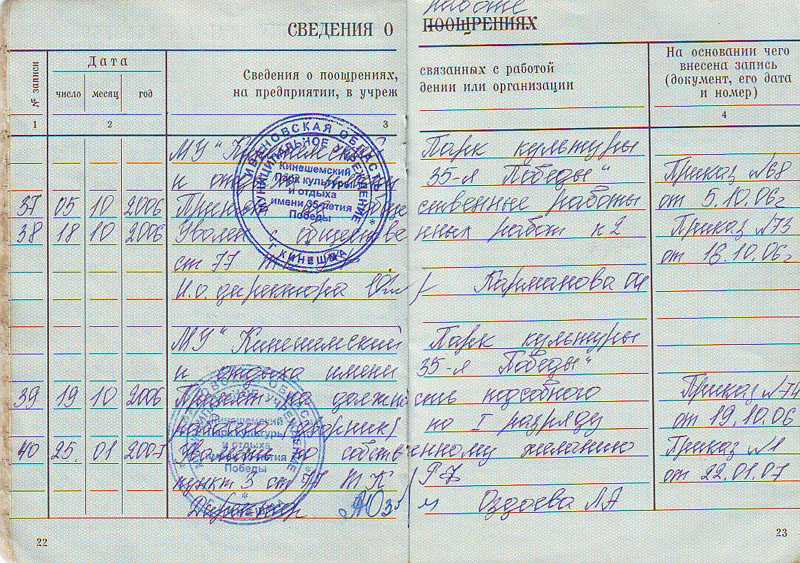 работе
СВЕДЕНИЯ О ПООЩРЕНИЯХ
№ записи
Дата
число месяц год
Сведения о поощрениях, связанных с работой
на предприятии, в учреж дении или организации
На основании чего
внесена запись
(документ, его дата
и номер)
1 2 3 4
МУ "Кинешемский Парк культуры
и отдыха 35-я Победы"
37 05 10 2006 ственные работы Приказ №68
от 5.10.06г
38 18 10 2006 Уволен с обществе нных работ п 2 Приказ №73
ст 77 от 16.10.06г
И.о. директора Карманова
МУ "Кинешемский Парк культуры
и отдыха имени 35-я Победы"
39 19 10 2006 Принят на должно сть подсобного Приказ №74
рабочего по I разряду от 19.10.06
40 25. 01 2007 Уволен по собств енному желанию Приказ №1
пункт 3 ст 77 ТК РФ от 22.01.07
Директор Оздоева ЛА
ИВАНОВСКАЯ ОБЛАСТЬ
МУНИЦИПАЛЬНОЕ УЧРЕЖДЕНИЕ
Кинешемский
Парк культуры
и отдыха
имени 35-летия
Победы
Г. КИНЕШМА
Кинешемский
Парк культуры
и отдыха
имени 35-летия
Победы
22
23